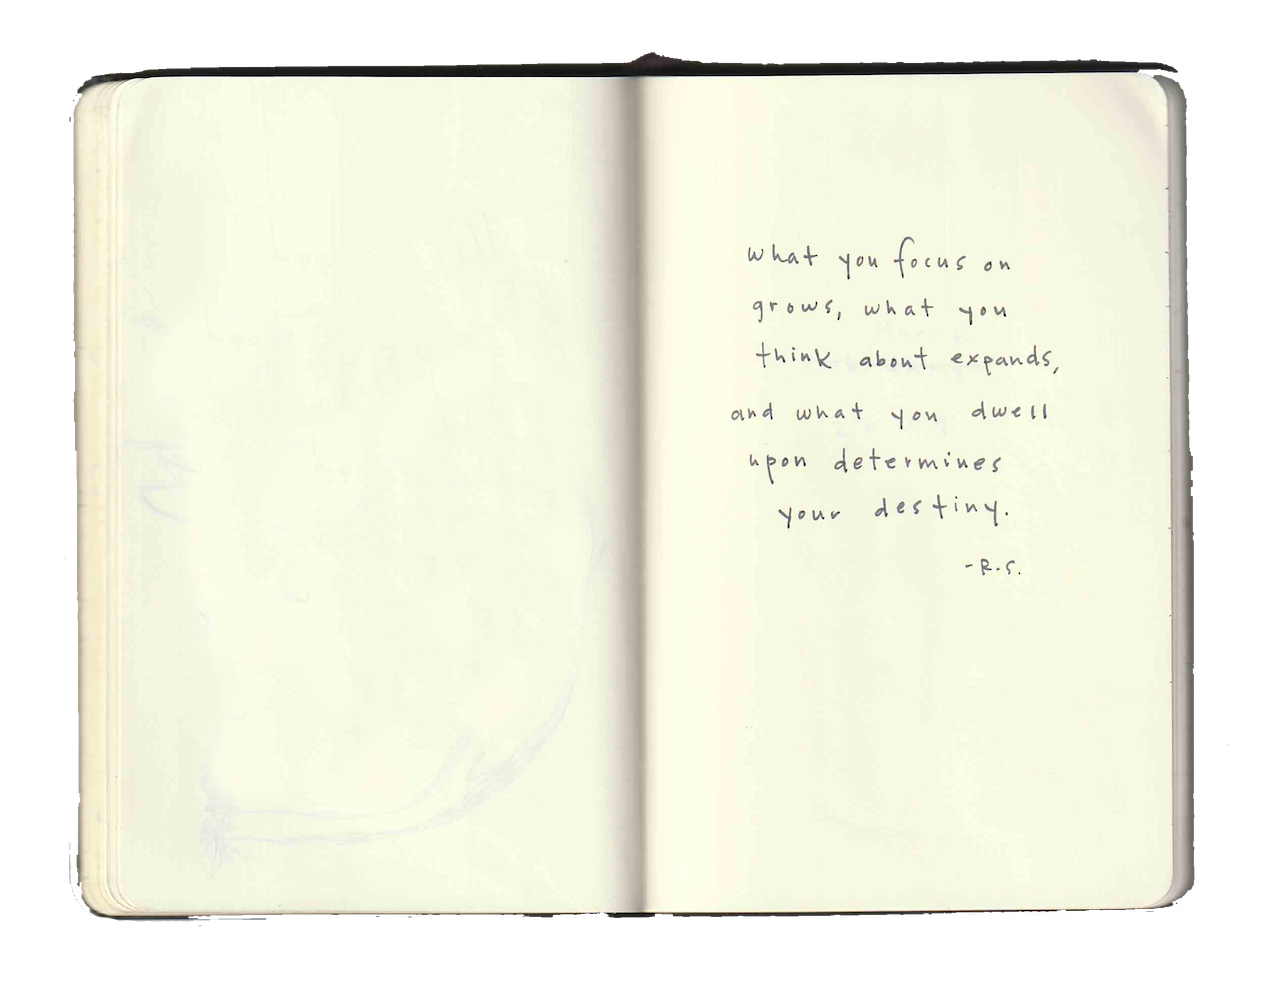 what you focus on
grows, what you
think about expands,
and what you dwell
upon determines
your destiny.
-R.S.